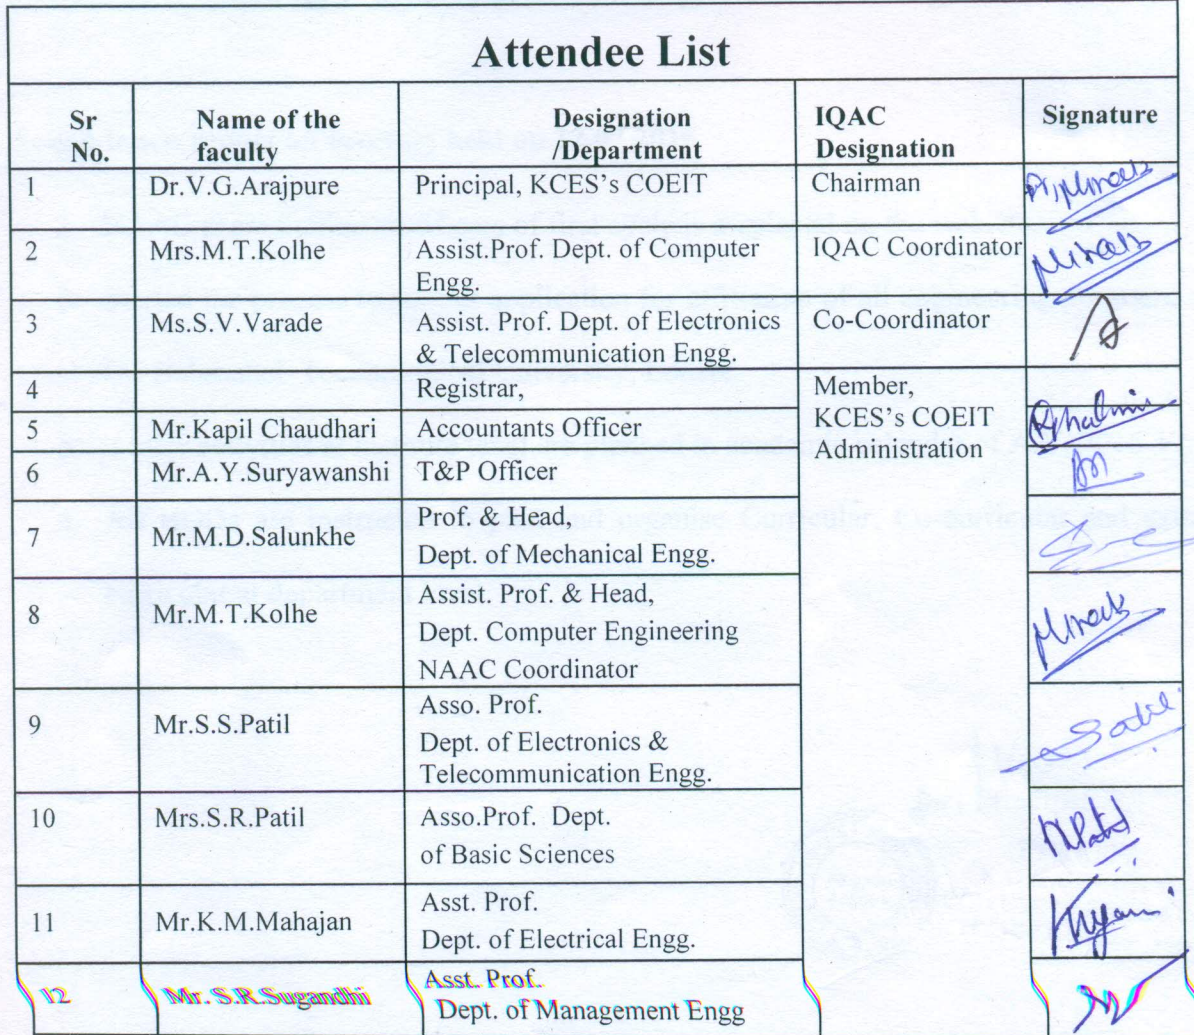 Attendee List
Sr No. Name of the faculty Designation /Department IQAC Designation Signature
1 Dr.V.G.Arajpure Principal, KCES's COEIT Chairman
2 Mrs.M.T.Kolhe Assist.Prof. Dept. of Computer Engg. IQAC Coordinator
3 Ms.S.V.Varade Assist. Prof. Dept. of Electronics & Telecommunication Engg. Co-Coordinator
4 Registrar, Member, KCES's COEIT Administration
5 Mr.Kapil Chaudhari Accountants Officer
6 Mr.A.Y.Suryawanshi T&P Officer
7 Mr.M.D.Salunkhe Prof. & Head,
Dept. of Mechanical Engg.
8 Mr.M.T.Kolhe Assist. Prof. & Head,
Dept. Computer Engineering
NAAC Coordinator
9 Mr.S.S.Patil Asso. Prof.
Dept. of Electronics &
Telecommunication Engg.
10 Mrs.S.R.Patil Asso.Prof. Dept.
of Basic Sciences
11 Mr.K.M.Mahajan Asst. Prof.
Dept. of Electrical Engg.
12 Mr. S.R.Sugandhi Asst. Prof.
Dept. of Management Engg